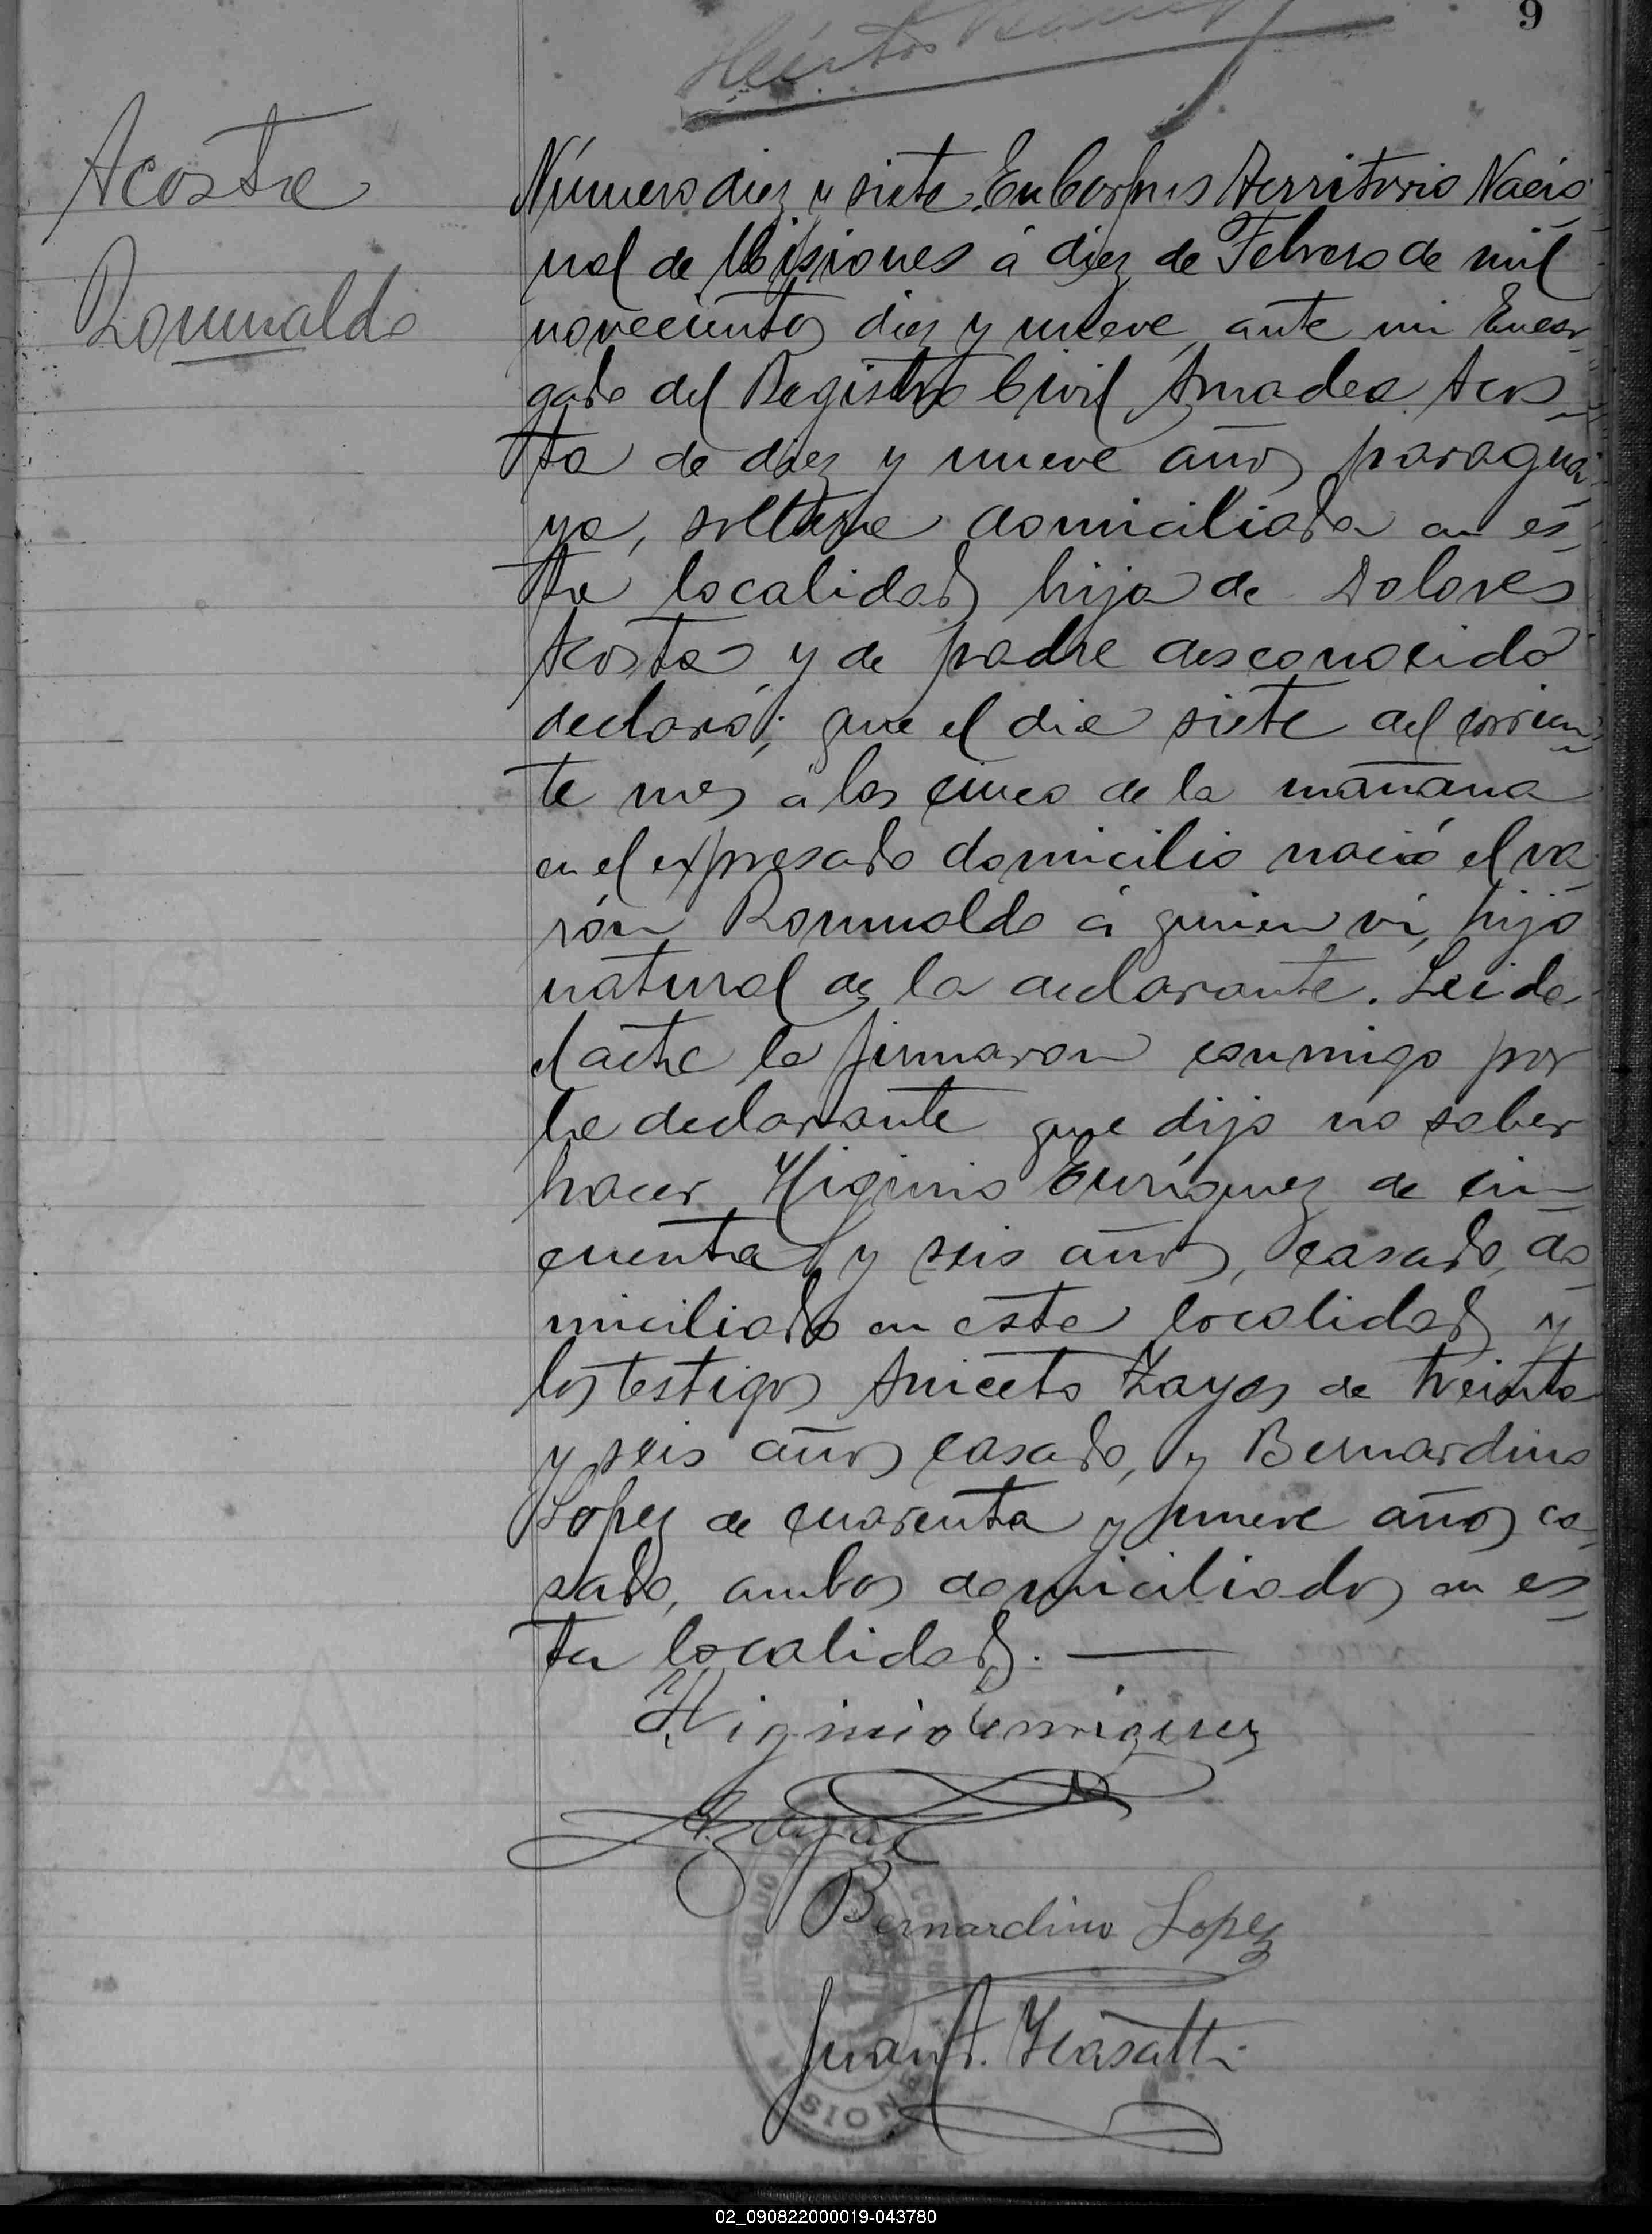 9
Acosta
Romualdo
Número diez y siete. En Corpus Territorio Nacio
nal de Misiones á diez de Febrero de mil
novecientos diez y nueve, ante mi Encar-
gado del Registro Civil, Amadea Acos-
ta de diez y nueve años paragua-
ya, soltera domiciliada en es-
ta localidad hija de Dolores
Acosta y de padre desconocido
declaró; que el dia siete del corrien-
te mes á las cinco de la mañana
en el expresado domicilio nació el va-
rón Romualdo á quien vi, hijo
natural de la declarante. Leida
el acta la firmaron conmigo por
la declarante que dijo no saber
hacer Higinio Enríquez de cin-
cuenta y seis años, casado, do-
miciliado en esta localidad y
los testigos Aniceto Zayas de treinta
y seis años casado, y Bernardino
Lopez de cuarenta y nueve años ca-
sado, ambos domiciliados en es-
ta localidad. —
Higinio Enriquez
A. Zayas
Bernardino Lopez
Juan A.
MISIONES
02_090822000019-043780